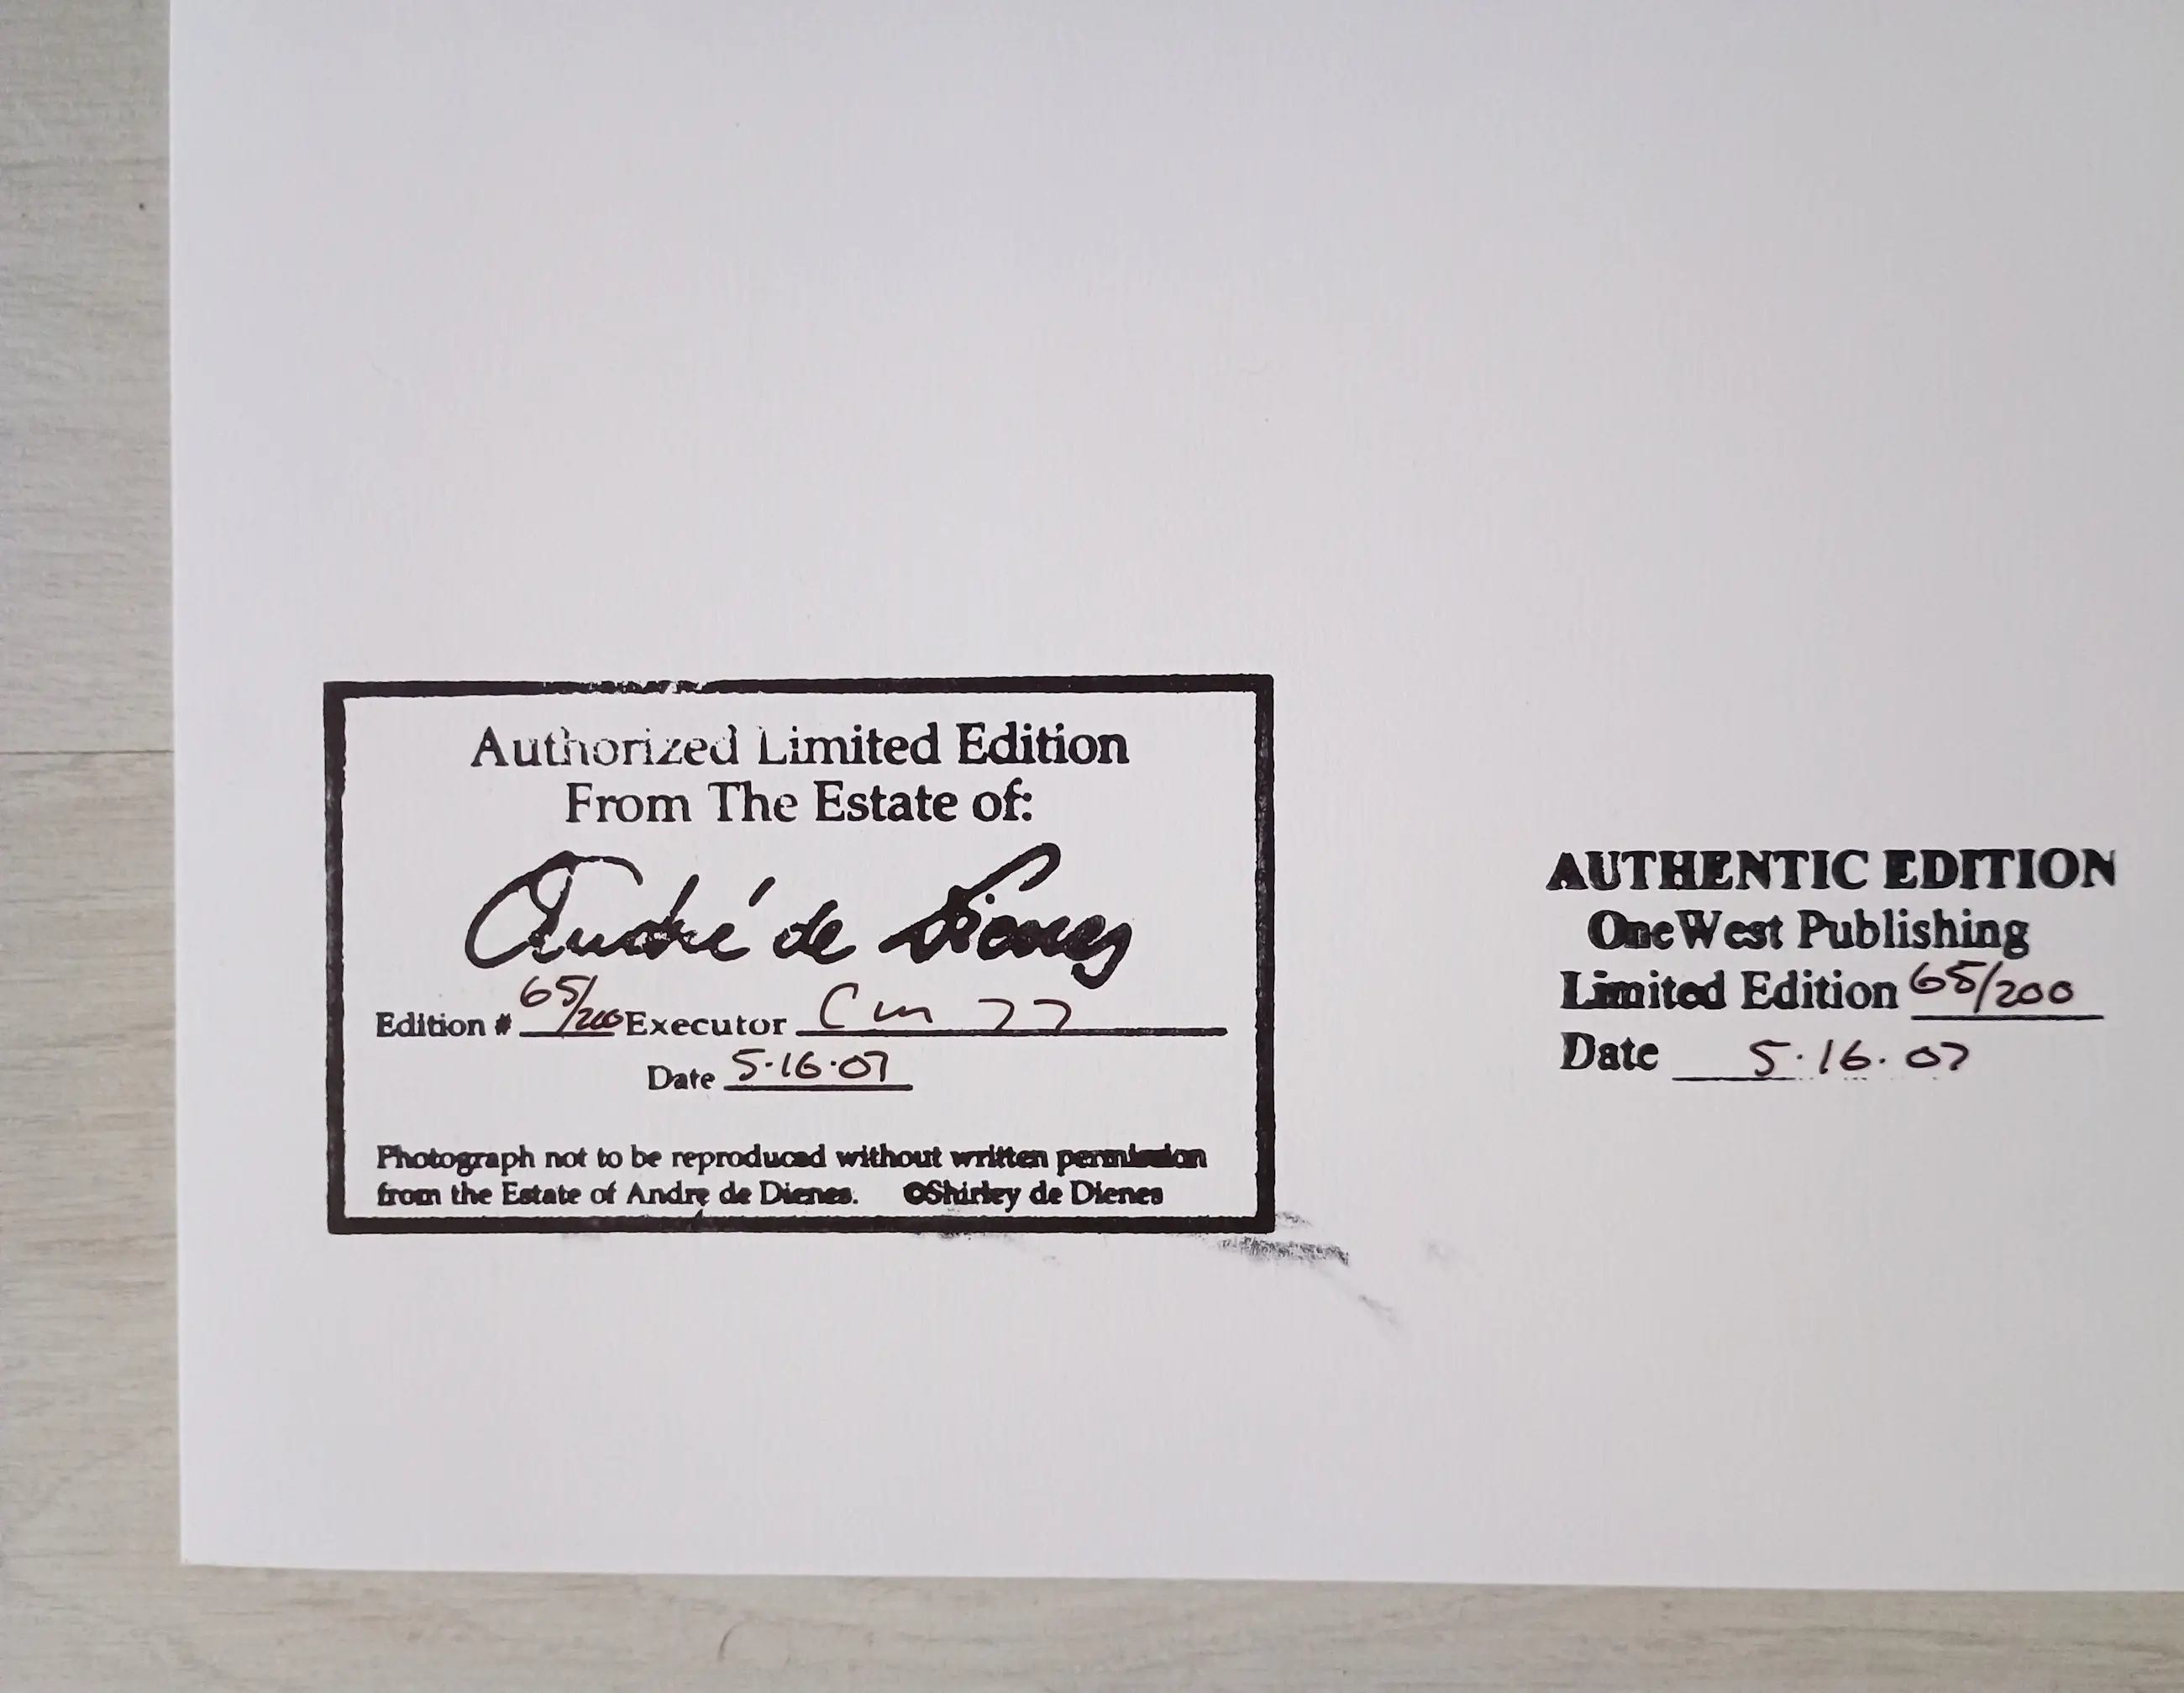 Authorized Limited Edition
From The Estate of:
André de Dienes
Edition # 65/200 Executor
Date 5·16·07
Photograph not to be reproduced without written permission
from the Estate of Andre de Dienes. ©Shirley de Dienes
AUTHENTIC EDITION
OneWest Publishing
Limited Edition 65/200
Date 5·16·07